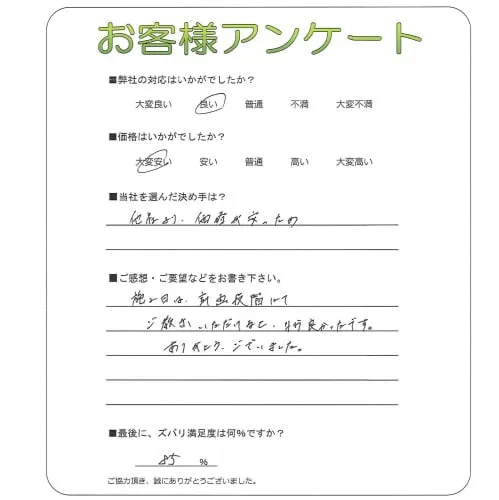 お客様アンケート
■弊社の対応はいかがでしたか？
大変良い 良い 普通 不満 大変不満
■価格はいかがでしたか？
大変安い 安い 普通 高い 大変高い
■当社を選んだ決め手は？
他社より、価格が安ったため
■ご感想・ご要望などをお書き下さい。
施工日は、計画段階にて
ご教示いただけると、
良かったです。
ありがとうございました。
■最後に、ズバリ満足度は何%ですか？
85 %
ご協力頂き、誠にありがとうございました。